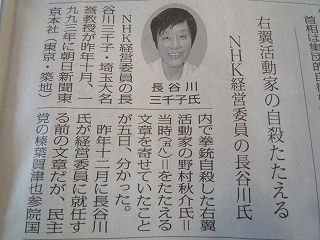 首相は集団的自
右翼活動家の自殺たたえる
NHK経営委員の長谷川氏
長谷川
三千子氏
NHK経営委員の長
谷川三千子・埼玉大名
誉教授が昨年十月、一
九九三年に朝日新聞東
京本社（東京・築地）
内で拳銃自殺した右翼
活動家の野村秋介氏＝
当時（五八）＝をたたえる
文章を寄せていたこと
が五日、分かった。
昨年十二月に長谷川
氏が経営委員に就任す
る前の文章だが、民主
党の榛葉賀津也参院国